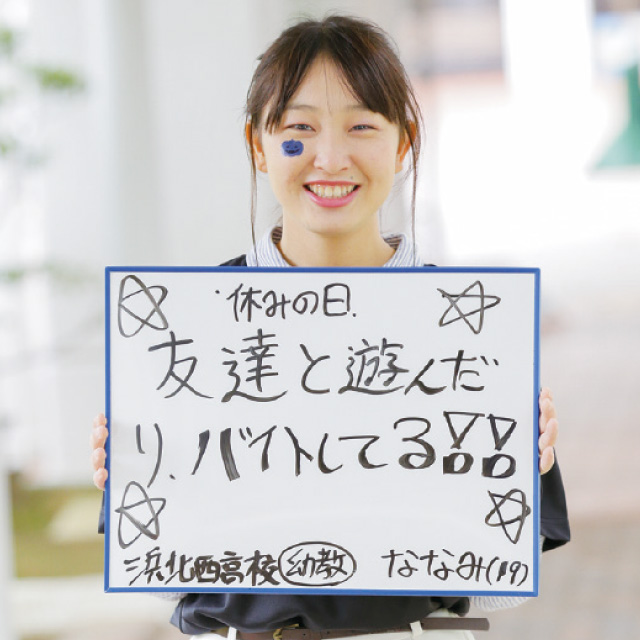 休みの日
友達と遊んだ
り、バイトしてる!!
浜北西高校 幼教 ななみ(19)